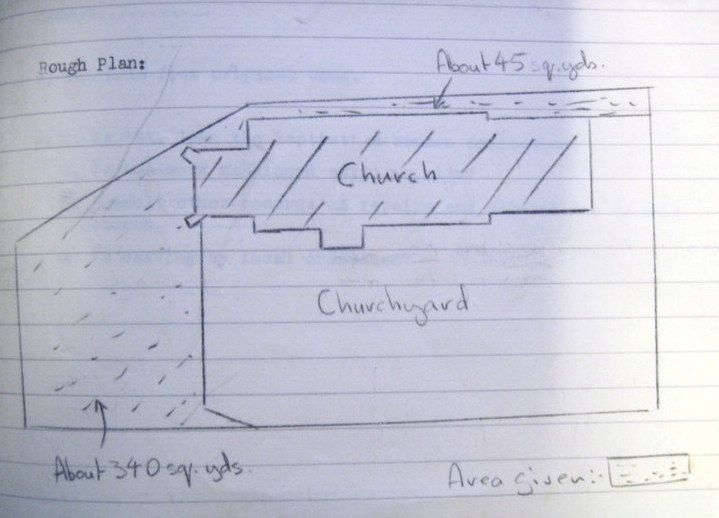 Rough Plan:
About 45 sq. yds.
Church
Churchyard
About 340 sq. yds.
Area given:-